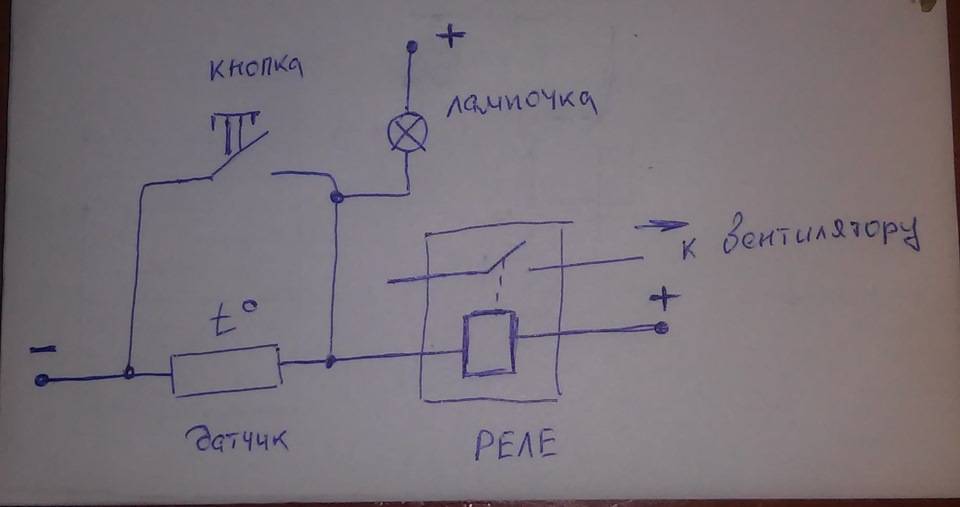 +
кнопка
лампочка
к вентилятору
+
t°
−
датчик
РЕЛЕ